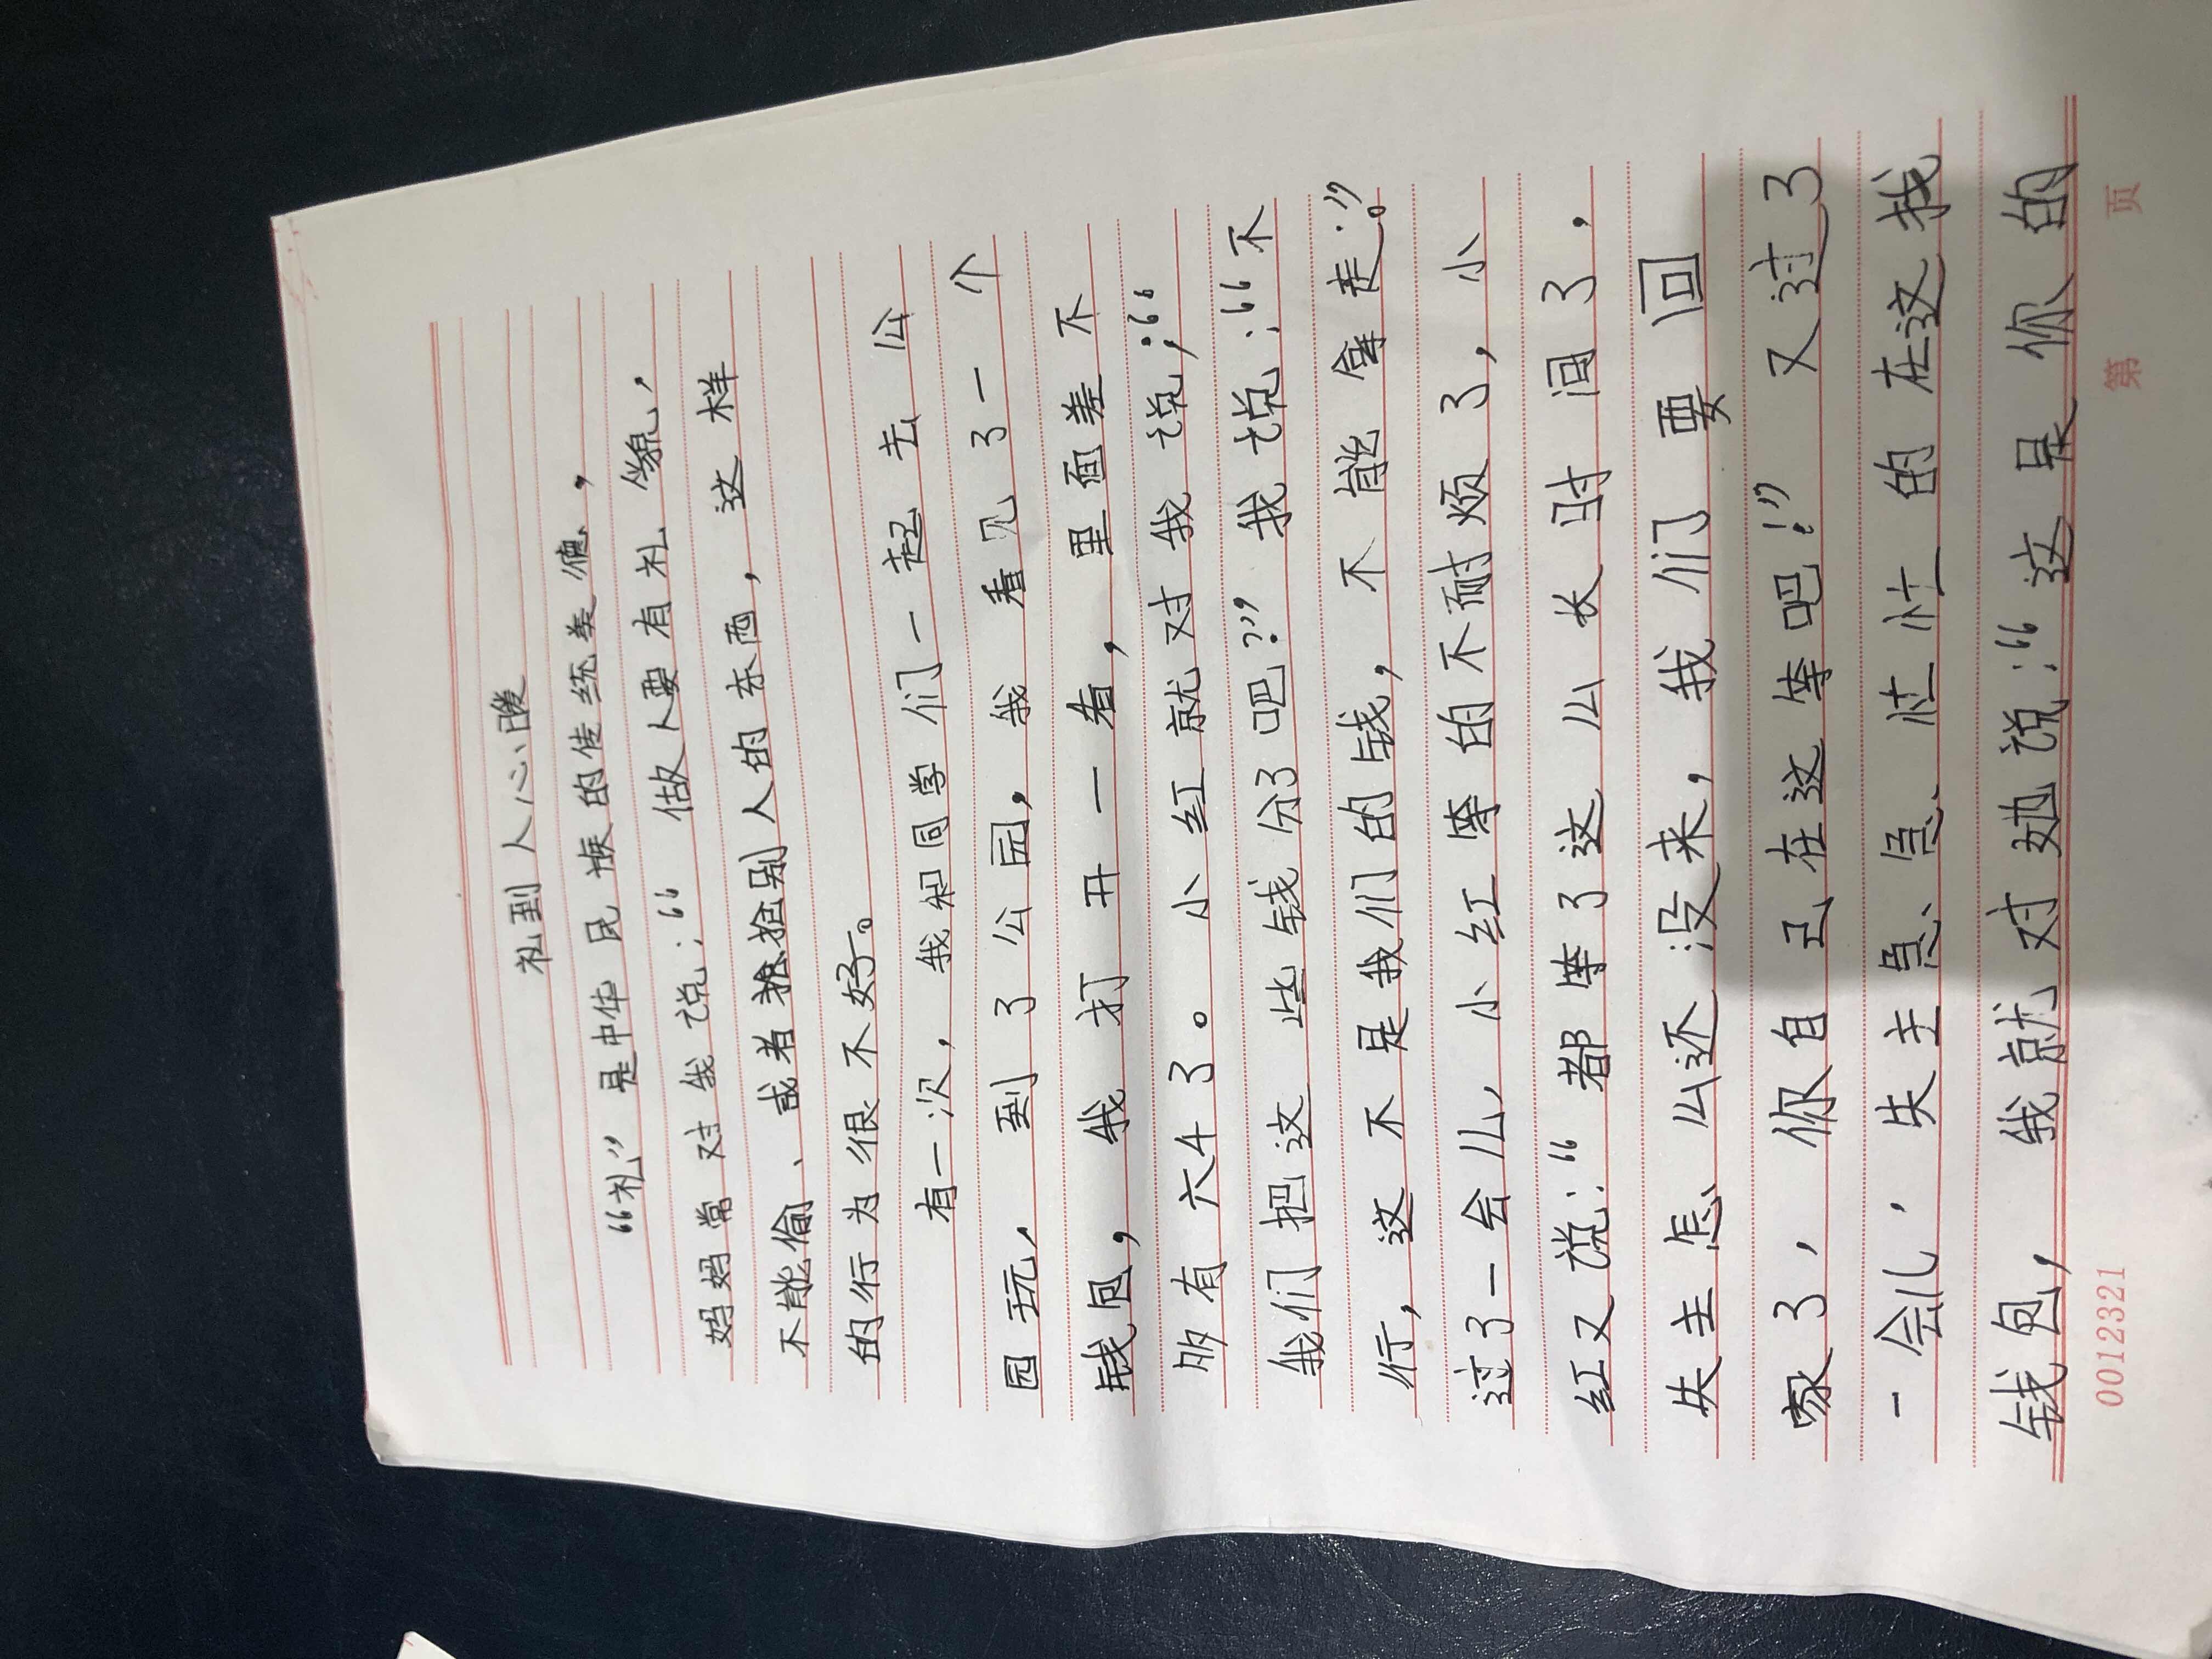 礼到人心暖
“礼”是中华民族的传统美德，
妈妈常对我说：“做人要有礼貌，
不能偷、或者抢别人的东西，这样
的行为很不好。
有一次，我和同学们一起去公
园玩，到了公园，我看见了一个
钱包，我打开一看，里面差不
多有六千了。小红就对我说；“
我们把这些钱分了吧？”我说：“不
行，这不是我们的钱，不能拿走。”
过了一会儿，小红等的不耐烦了，小
红又说：“都等了这么长时间了，
失主怎么还没来，我们要回
家了，你自己在这等吧！”又过了
一会儿，失主急急忙忙的在这找
钱包，我就对她说：“这是你的
0012321
第 页